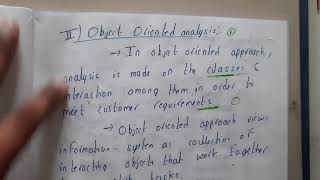 II) Object Oriented analysis:-
→ In objct oriented approach,
analysis is made on the classes &
interaction among them in order to
meet customer requirements.
→ Object oriented approach views
information-system as collection of
interacting objects that work together
tasks.